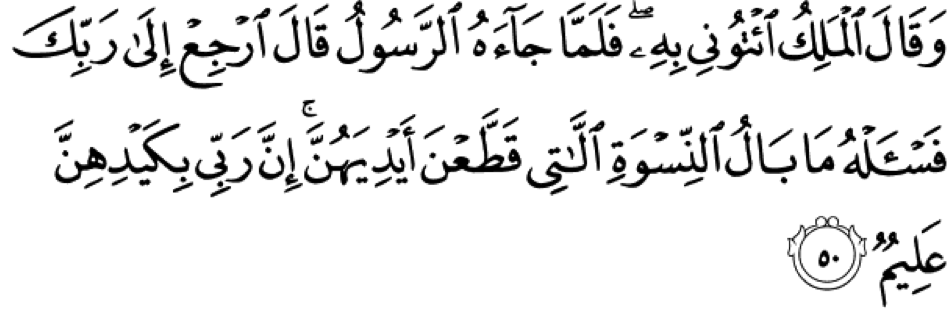 وَقَالَ ٱلْمَلِكُ ٱئْتُونِى بِهِۦ ۖ فَلَمَّا جَآءَهُ ٱلرَّسُولُ قَالَ ٱرْجِعْ إِلَىٰ رَبِّكَ
فَسْـَٔلْهُ مَا بَالُ ٱلنِّسْوَةِ ٱلَّـٰتِى قَطَّعْنَ أَيْدِيَهُنَّ ۚ إِنَّ رَبِّى بِكَيْدِهِنَّ
عَلِيمٌ ٥٠